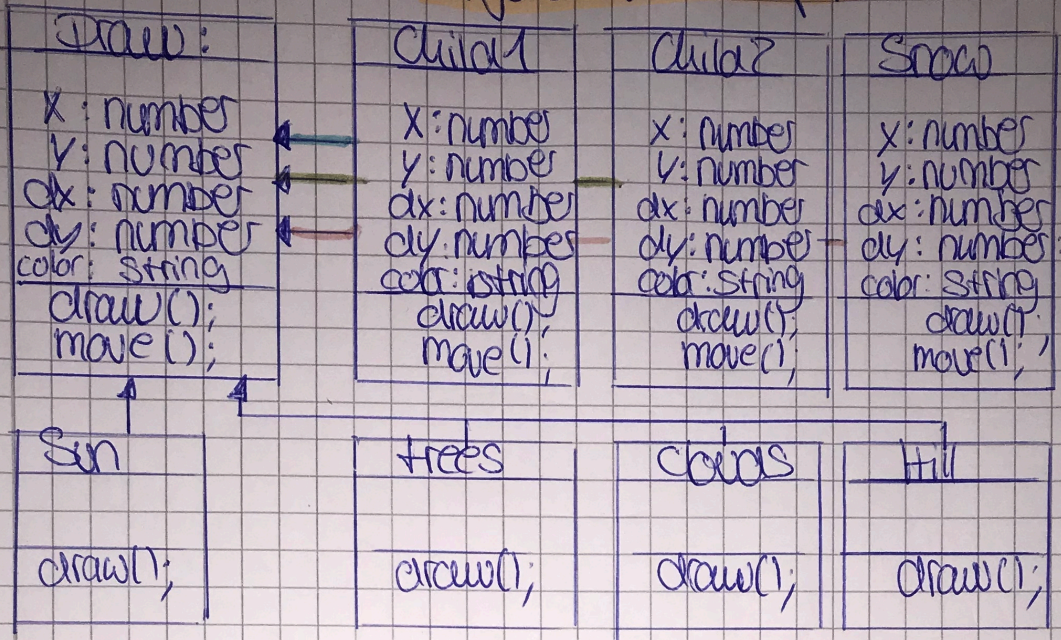 Draw:
x: number
y: number
dx: number
dy: number
color: string
draw();
move();
Child1
x: number
y: number
dx: number
dy: number
color: string
draw();
move();
Child2
x: number
y: number
dx: number
dy: number
color: string
draw();
move();
Snow
x: number
y: number
dx: number
dy: number
color: string
draw();
move();
Sun
draw();
trees
draw();
clouds
draw();
Hill
draw();